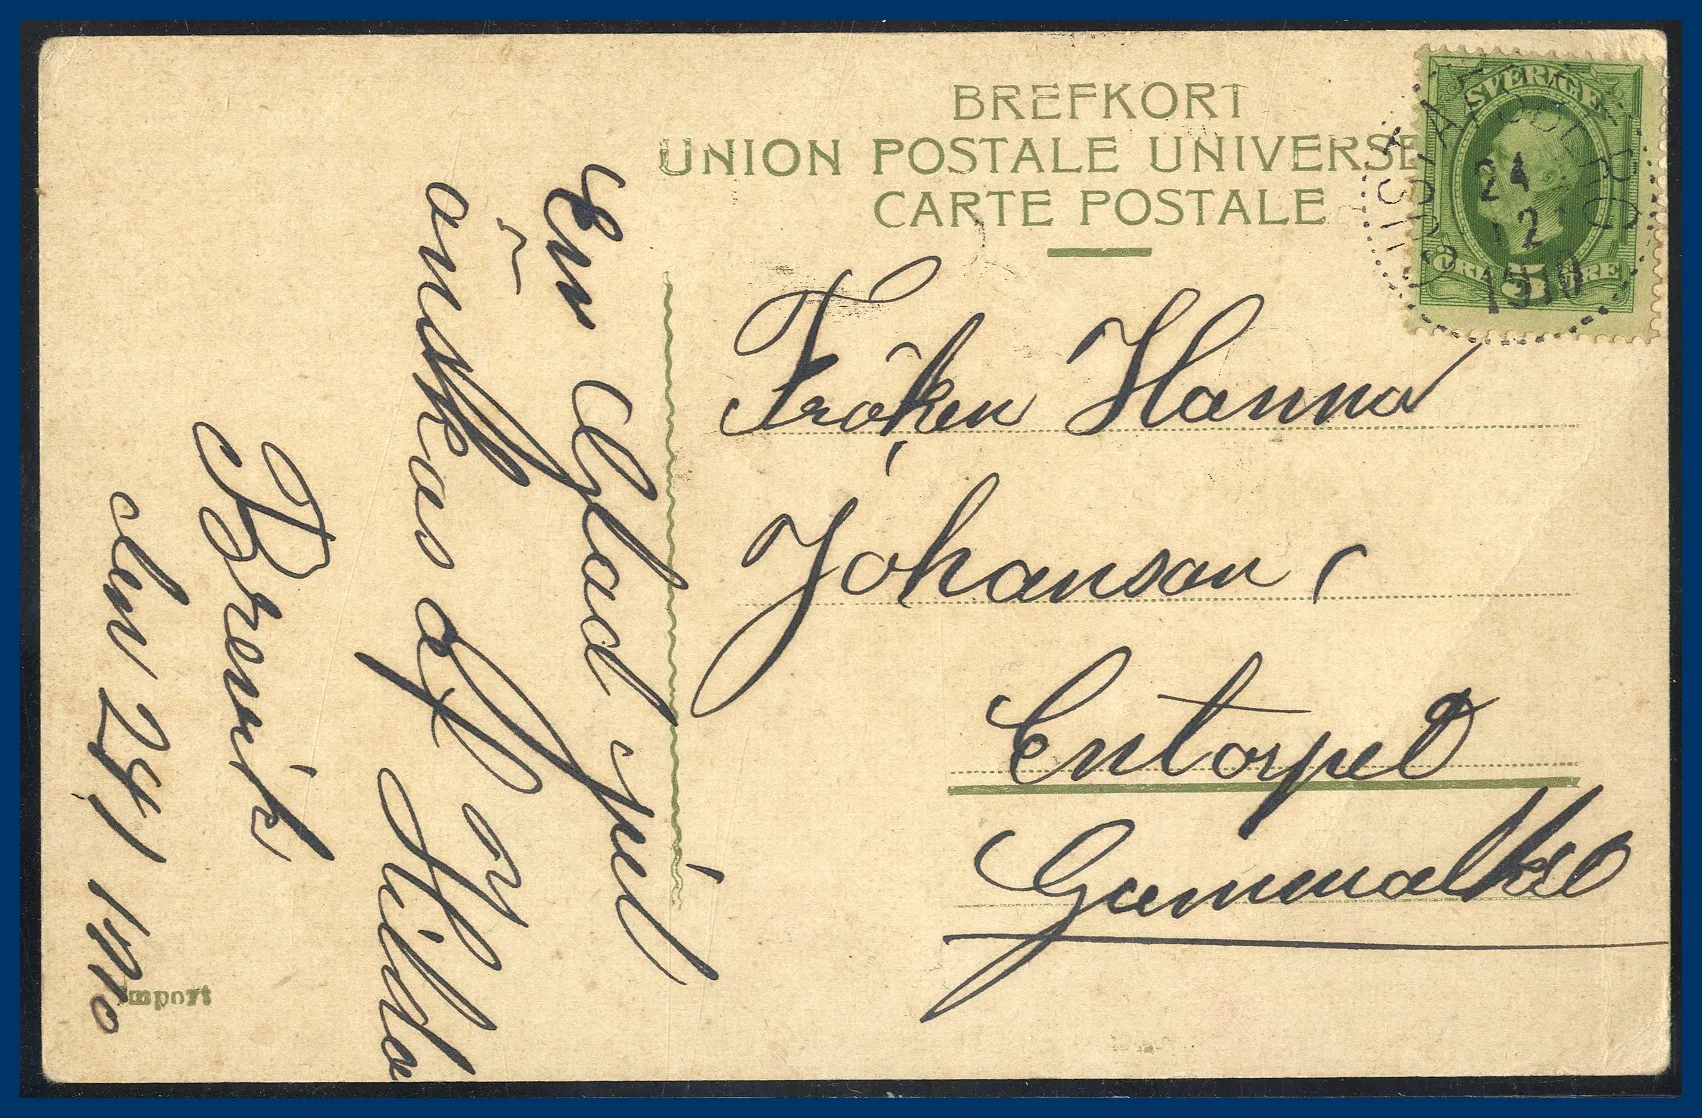 BREFKORT
UNION POSTALE UNIVERSE
CARTE POSTALE
SVERIGE
24
12
1910
5
ÖRE
Fröken Hanna
Johanson,
Entorpet
Gammalkil
En Glad jul
önskas af
Hilda
Brevik
den 24/ 1910
Import